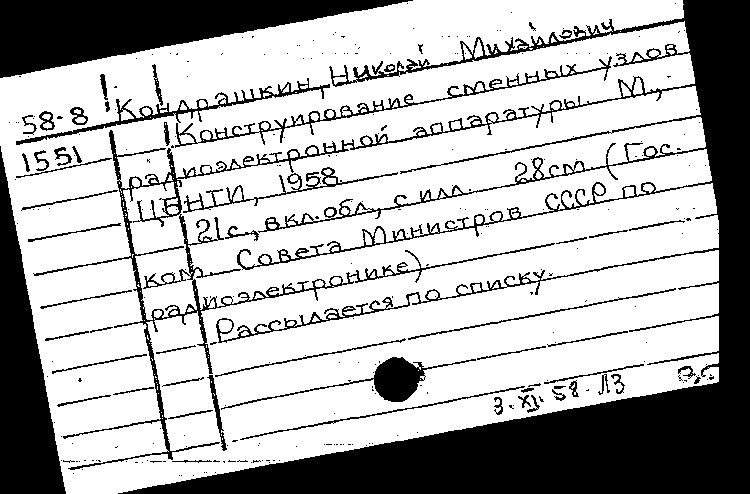 58-8 Кондрашкин, Николай Михайлович
1551 Конструирование сменных узлов
радиоэлектронной аппаратуры. М.,
ЦБНТИ, 1958.
21с., вкл. обл., с илл. 28см (Гос.
ком. Совета Министров СССР по
радиоэлектронике).
Рассылается по списку.
3.XI.58. ЛЗ